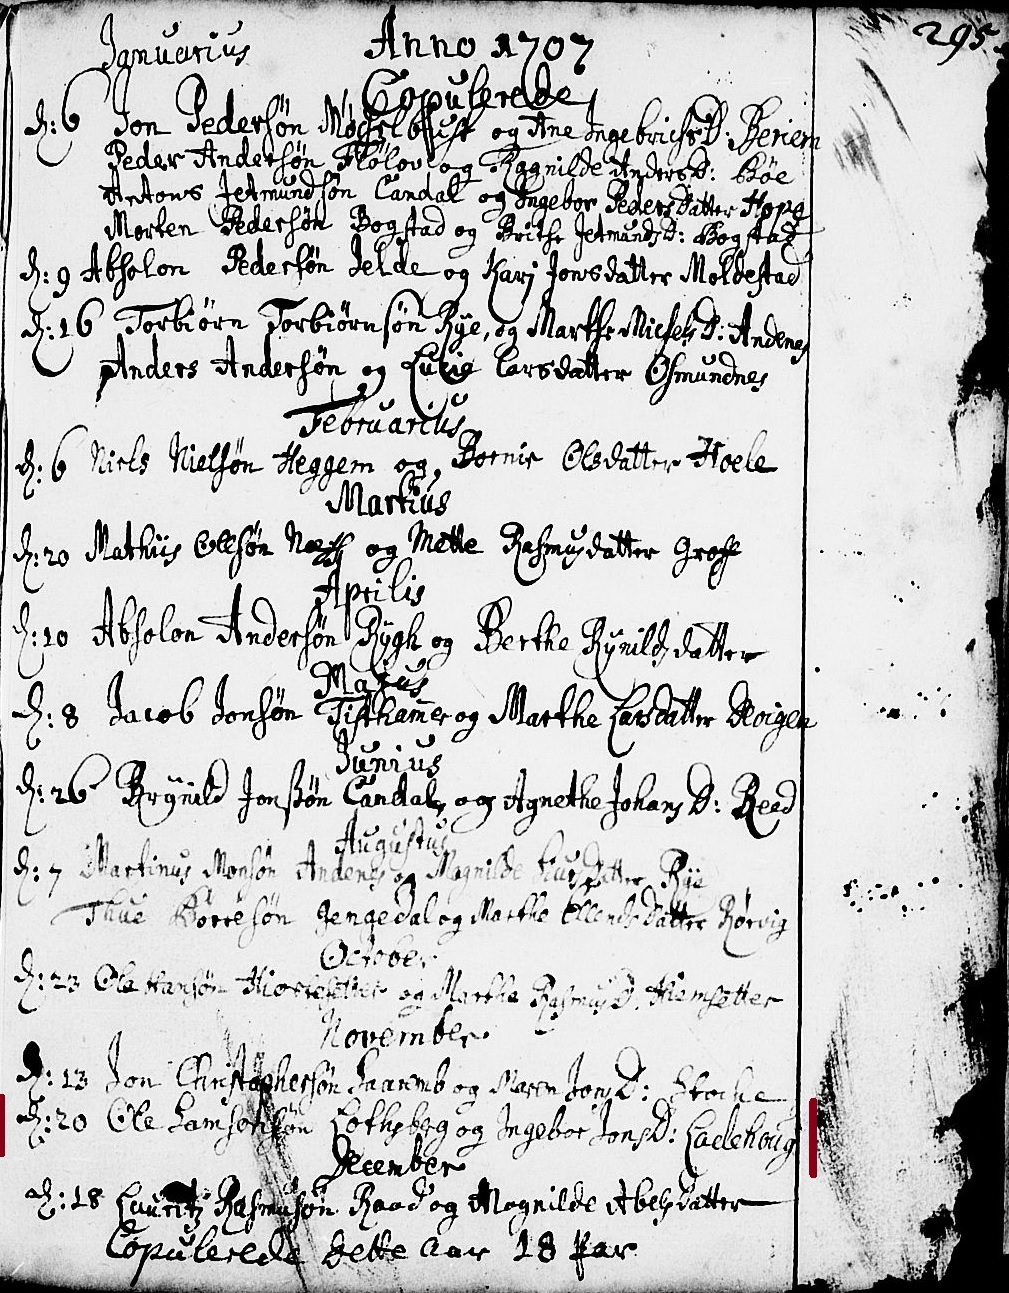 295
Januarius Anno 1707
Copulerede
d: 6 Jon Pedersøn og Ane Ingebrichts D: Beriem
Peder Andersøn Fløløv og Ragnilde Anders D: Bøe
Antons Jetmundsøn Candal og Ingebor Pedersdatter Hope
Morten Pedersøn Bogstad og Brithe Jetmunds D: Bogstad
d: 9 Absolon Pedersøn Jelde og Karj Jonsdatter Moldestad
d: 16 Torbiørn Torbiørnsøn Rye, og Marthe Michels D: Andenes
Anders Andersøn og Lucie Larsdatter Osmundnes
Februarius
d: 6 Niels Nielsøn Heggem og Bornir Olsdatter Hoele
Martius
d: 20 Mathijs Ollsøn Næss og Mette Rasmusdatter Groff
Aprilis
d: 10 Absolon Andersøn Rygh og Berthe Rynilds datter
Majus
d: 8 Jacob Jonsøn Tisthamer og Marthe Larsdatter
Junius
d: 26 Brynild Jonssøn Candal, og Agnethe Johans D: Reed
Augustus
d: 7 Martinus Monsøn Andenes og Magnilde datter Rye
Thue Børresøn Gengedal og Marthe Ellends datter Rørvig
October
d: 23 Ole Hansøn og Marthe Rasmus D. Hiemsetter
November
d: 13 Jon Christophersøn Taaremb og Maren Jons D:
d: 20 Ole Samsonsøn Lothsberg og Ingebor Jons D: Ladehoug
December
d: 18 Lauritz Rasmusøn Raad og Magnilde Abels datter
Copulerede dette aar 18 Par